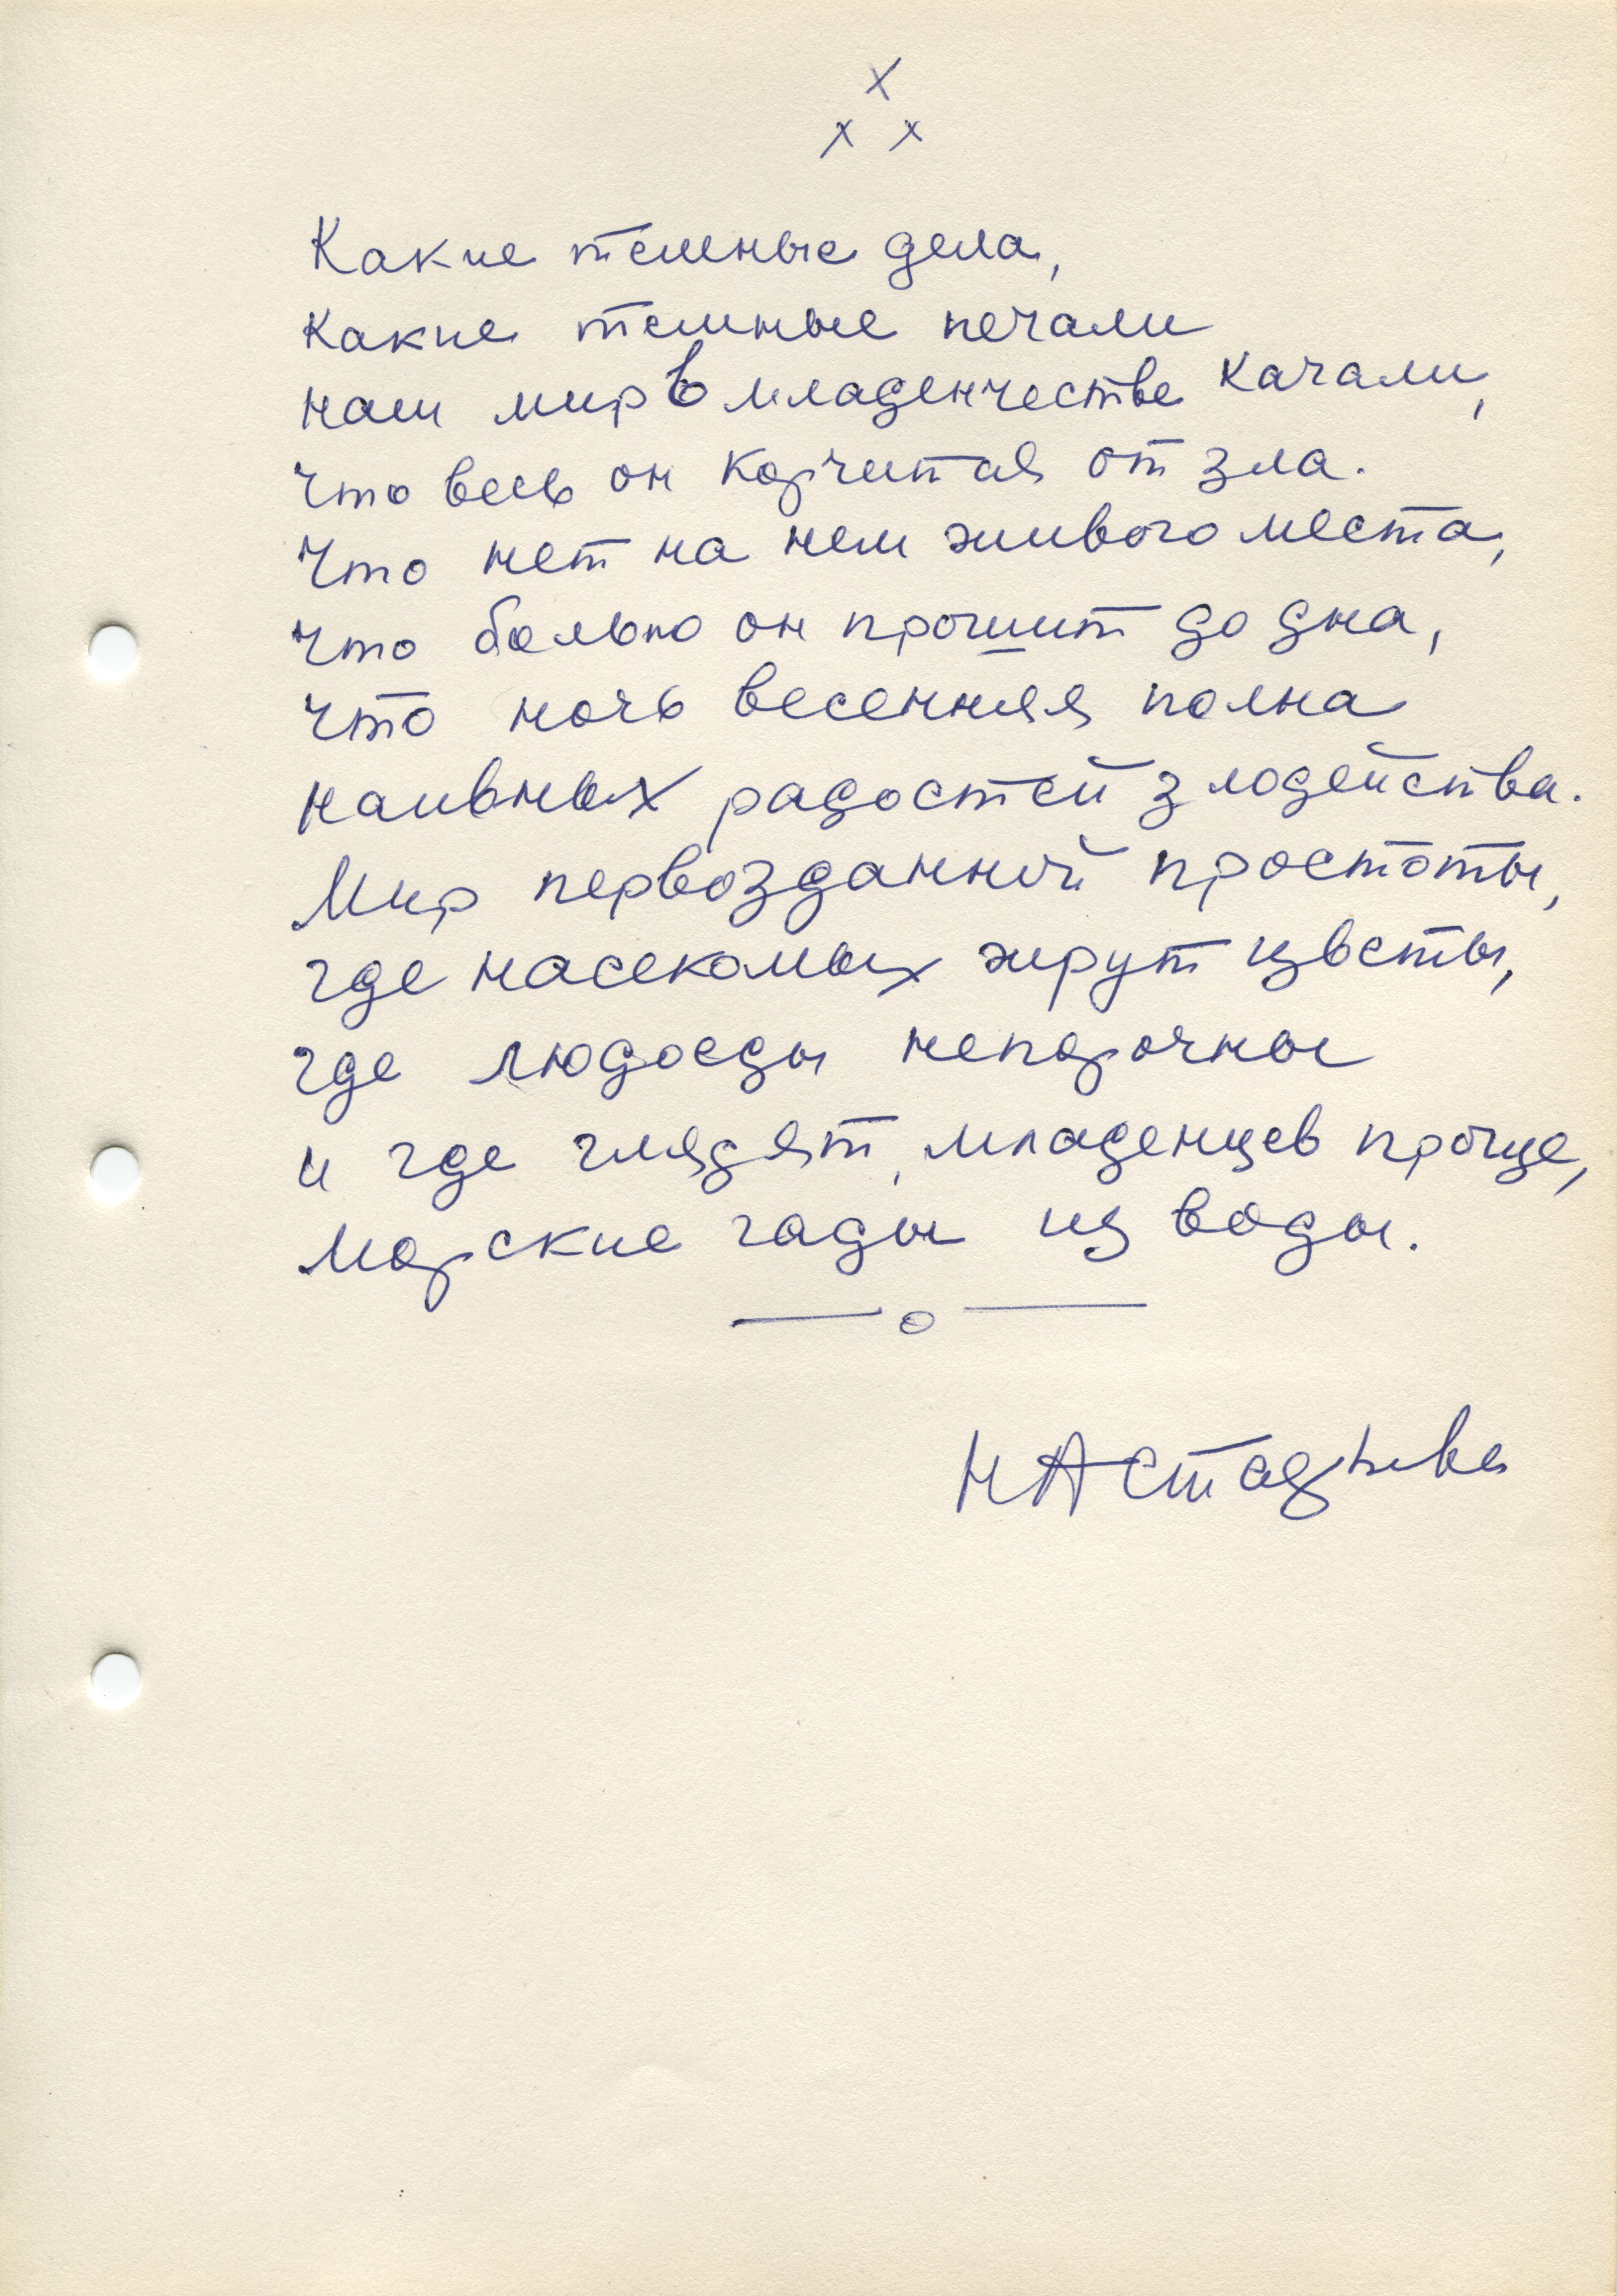 х
х х
Какие темные дела,
какие темные печали
наш мир в младенчестве качали,
что весь он корчится от зла.
Что нет на нем живого места,
что болью он прошит до дна,
что ночь весенняя полна
наивных радостей злодейства.
Мир первозданной простоты,
где насекомых жрут цветы,
где людоеды непорочны
и где глядят, младенцев проще,
морские гады из воды.
— о —
Н Астафьева